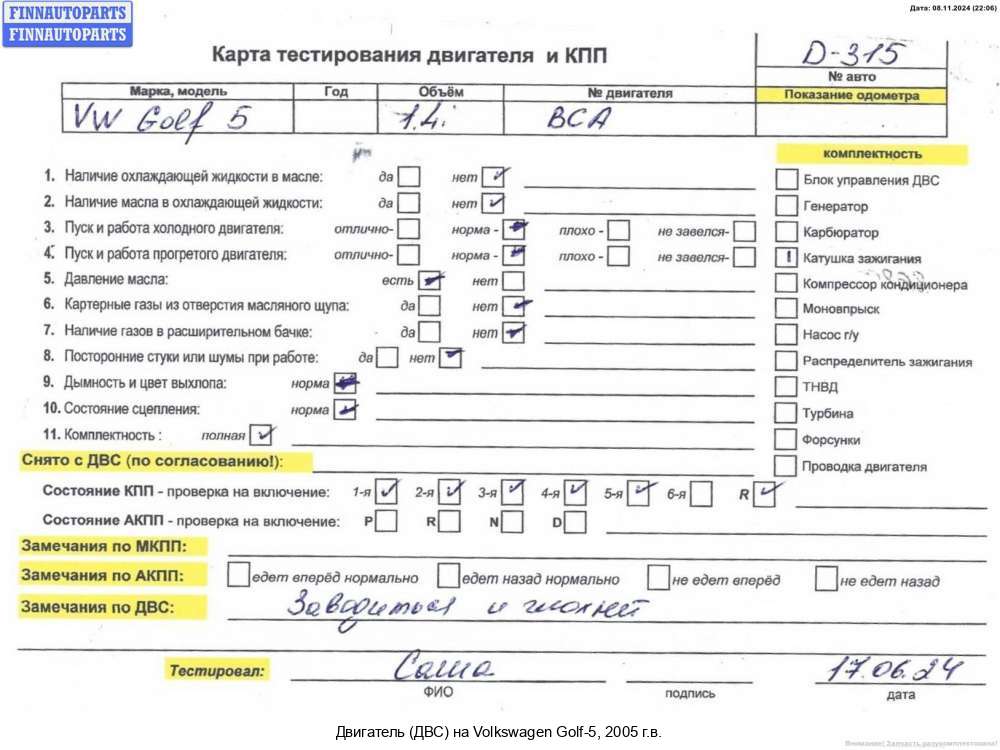 FINNAUTOPARTS
FINNAUTOPARTS
Дата: 08.11.2024 (22:06)
Карта тестирования двигателя и КПП
D-315
№ авто
Марка, модель Год Объём № двигателя Показание одометра
VW Golf 5 1.4i BCA
комплектность
1. Наличие охлаждающей жидкости в масле: да нет
Блок управления ДВС
2. Наличие масла в охлаждающей жидкости: да нет
Генератор
3. Пуск и работа холодного двигателя: отлично- норма - плохо - не завелся-
Карбюратор
4. Пуск и работа прогретого двигателя: отлично- норма - плохо - не завелся-
Катушка зажигания
5. Давление масла: есть нет
Компрессор кондиционера
6. Картерные газы из отверстия масляного щупа: да нет
Моновпрыск
7. Наличие газов в расширительном бачке: да нет
Насос г/у
8. Посторонние стуки или шумы при работе: да нет
Распределитель зажигания
9. Дымность и цвет выхлопа: норма
ТНВД
10. Состояние сцепления: норма
Турбина
11. Комплектность : полная
Форсунки
Снято с ДВС (по согласованию!):
Проводка двигателя
Состояние КПП - проверка на включение: 1-я 2-я 3-я 4-я 5-я 6-я R
Состояние АКПП - проверка на включение: P R N D
Замечания по МКПП:
Замечания по АКПП: едет вперёд нормально едет назад нормально не едет вперёд не едет назад
Замечания по ДВС: Заводиться и глохнет
Тестировал: Саша 17.06.24
ФИО подпись дата
Двигатель (ДВС) на Volkswagen Golf-5, 2005 г.в.
Внимание! Запчасть разукомплектована!